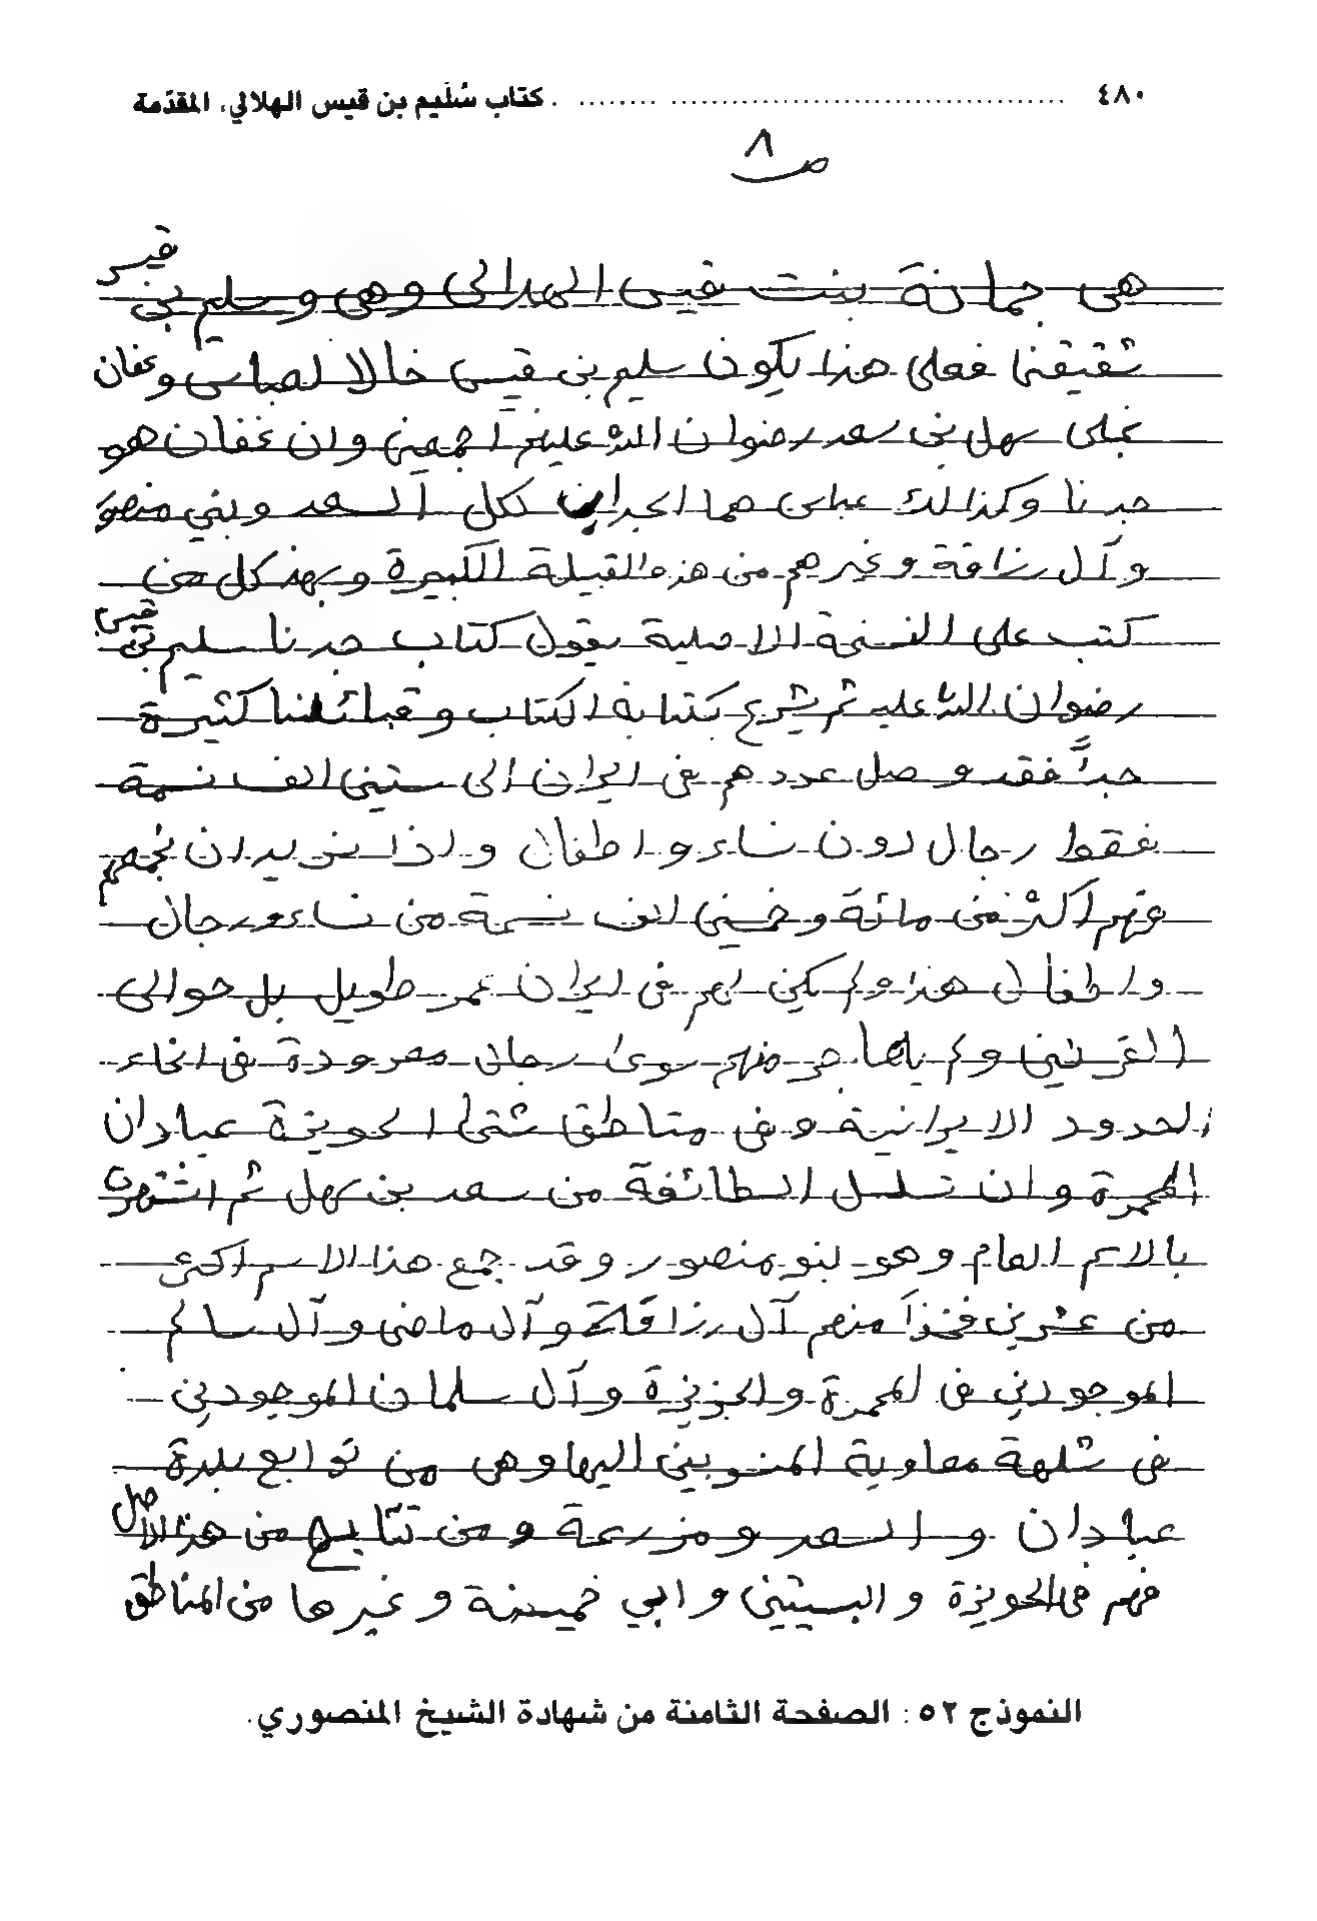 ٤٨٠ ........ كتاب سُلَيم بن قيس الهلالي، المقدّمة
ص ٨
هي جمانة بنت قيس الهلالي وهي وسليم بن قيس
شقيقنا فعلى هذا يكون سليم بن قيس خالا لعباس وعفان
نجلى سهل بن سعد رضوان الله عليهم اجمعين وان عفان هو
جدنا وكذالك عباس هما الجدان لكل السعد وبني منصور
وآل رزاقة وغيرهم من هذه القبيلة الكبيرة وبهذ كل من
كتب على النسخة الاصلية يقول كتاب جدنا سليم بن قيس
رضوان الله عليه ثم يشرع بكتابة الكتاب وقبائلنا كثيرة
جداً فقد وصل عددهم في ايران الى ستين الف نسمة
فقط رجال دون نساء واطفال واذا نريد ان نجمعهم
فهم اكثر من مائة وخمسين الف نسمة من نساء ورجال
واطفال هذا ولم يكن لهم في ايران عمر طويل بل حوالى
القرنين ولم منهم سوى رجال معدودة في انحاء
الحدود الايرانية وفي مناطق شتى الحويزة عبادان
المحمرة وان تسلسل الطائفة من سعد بن سهل ثم اشتهرت
بالاسم العام وهو لبنو منصور وقد جمع هذا الاسم اكثر
من عشرين فخذاً منهم آل رزاقة وآل ماضي وآل سالم
الموجودين في المحمرة والجزيرة وآل سلمان الموجودين
في شلهة معاوية المنسوبين اليها وهي من توابع بلدة
عبادان والسعد ومزرعة ومن تتابع من هذا الاصل
فهم في الحويزة والبسيتين وابي خميسة وغيرها من المناطق
النموذج ٥٢ : الصفحة الثامنة من شهادة الشيخ المنصوري.